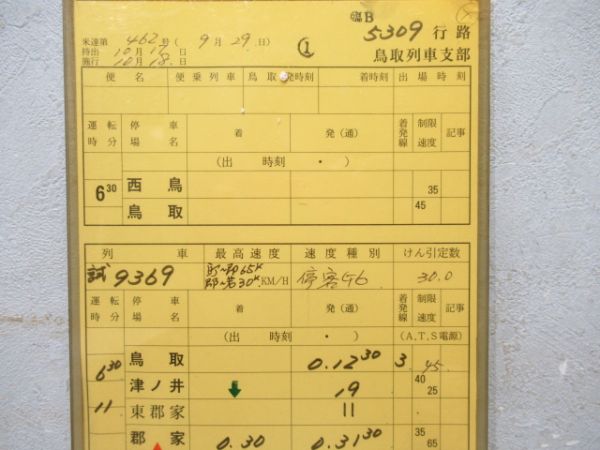 臨B 5309 行路
米達第 462号 (9月29日)
持出 10月17日
施行 10月18日
① 鳥取列車支部
便名 便乗列車 鳥取発時刻 着時刻 出場時刻
運転時分 停車場名 着 発(通) 着発線 制限速度 記事
(出 時刻 ・ )
6 30 西鳥 35
鳥取 45
列車 最高速度 速度種別 けん引定数
試9369 鳥~郡65K 郡~若30K KM/H 停客G6 30.0
運転時分 停車場名 着 発(通) 着発線 制限速度 記事
(出 時刻 ・ ) (A.T.S電源)
6 30 鳥取 0.12 30 3 45.
津ノ井 ↓ 19 40 25
11 東郡家 11
郡家 0.30 0.31 30 35 65